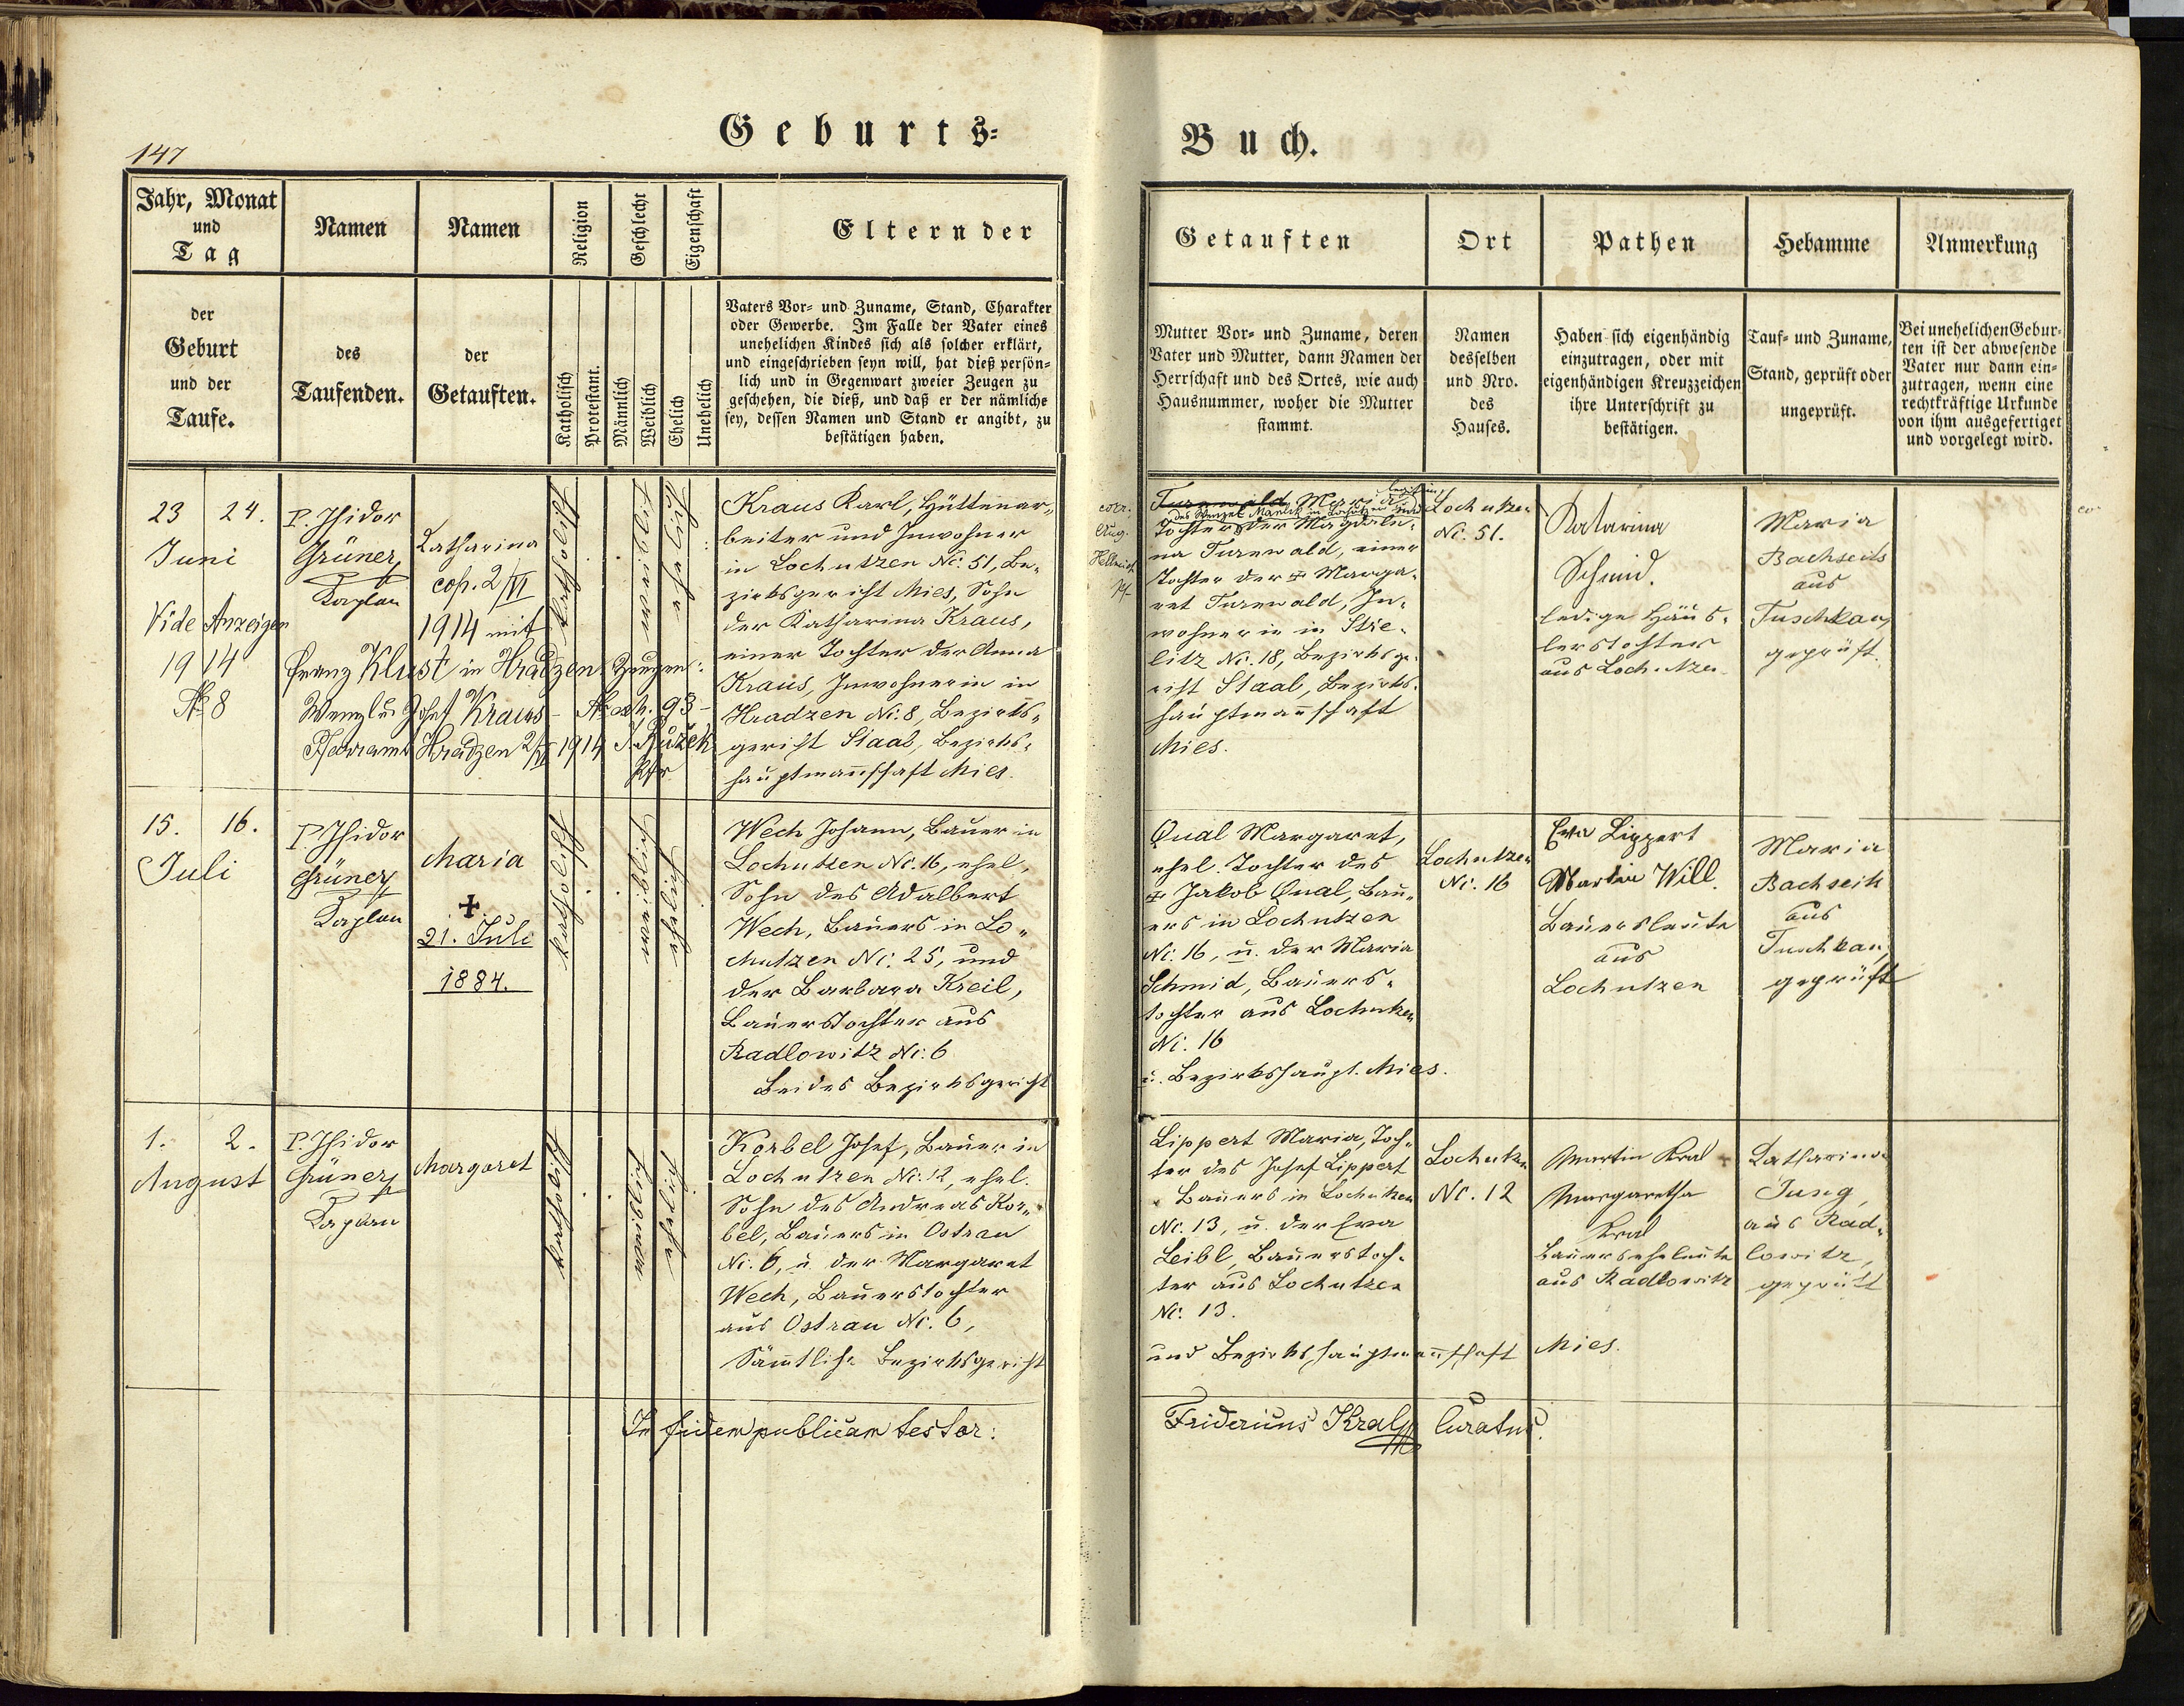 Geburts-
Buch.
147
Jahr, Monat
und
Tag
Namen
Namen
Religion
Geschlecht
Eigenschaft
Eltern der
der
Geburt
und der
Taufe.
des
Taufenden.
der
Getauften.
Katholisch
Protestant.
Männlich
Weiblich
Ehelich
Unehelich
Vaters Vor- und Zuname, Stand, Charakter
oder Gewerbe. Im Falle der Vater eines
unehelichen Kindes sich als solcher erklärt,
und eingeschrieben seyn will, hat dieß persön-
lich und in Gegenwart zweier Zeugen zu
geschehen, die dieß, und daß er der nämliche
sey, dessen Namen und Stand er angibt, zu
bestätigen haben.
Getauften
Ort
Pathen
Hebamme
Anmerkung
Mutter Vor- und Zuname, deren
Vater und Mutter, dann Namen der
Herrschaft und des Ortes, wie auch
Hausnummer, woher die Mutter
stammt.
Namen
desselben
und Nro.
des
Hauses.
Haben sich eigenhändig
einzutragen, oder mit
eigenhändigen Kreuzzeichen
ihre Unterschrift zu
bestätigen.
Tauf- und Zuname,
Stand, geprüft oder
ungeprüft.
Bei unehelichen Gebur-
ten ist der abwesende
Vater nur dann ein-
zutragen, wenn eine
rechtkräftige Urkunde
von ihm ausgefertiget
und vorgelegt wird.
23 24.
Juni
Vide Anzeigen
1914
No 8
P. Isidor
Grüner
Kaplan
Katharina
cop. 2/VI
1914 mit
Franz Klust in Hradzen Zeugen:
Wenzl u. Josef Kraus
Pfarramt Hradzen 2/VI 1914 J. Ružek
Pfr
katholisch
weiblich
ehelich
Kraus Karl, Hüttenar-
beiter und Inwohner
in Lochutzen No. 51, Be-
zirksgericht Mies, Sohn
der Katharina Kraus,
einer Tochter der Anna
Kraus, Inwohnerin in
Hradzen No. 8, Bezirks-
gericht Staab, Bezirks-
hauptmannschaft Mies.
corr.
Aug.
Turnwald Maria
Tochter der Magdale-
na Turnwald, einer
Tochter der Marga-
ret Turnwald, In-
wohnerin in Stře-
litz No. 18, Bezirksge-
richt Staab, Bezirks-
hauptmannschaft
Mies.
Lochutzen
No. 51.
Katarina
Schmid.
ledige Häus-
lerstochter
aus Lochutzen
Maria
Bachseits
aus
Tuschkau
geprüft.
15. 16.
Juli
P. Isidor
Grüner
Kaplan
Maria
✝
21. Juli
1884.
katholisch
weiblich
ehelich
Wech Johann, Bauer in
Lochutzen No. 16, ehel.
Sohn des Adalbert
Wech, Bauers in Lo-
chutzen No. 25, und
der Barbara Kreil,
Bauerstochter aus
Radlowitz No. 6
Beides Bezirksgericht
Qual Margaret,
ehel. Tochter des
Jakob Qual, Bau-
ers in Lochutzen
No. 16, u. der Maria
Schmid, Bauers-
tochter aus Lochutzen
No. 16
u. Bezirkshaupt. Mies.
Lochutzen
No. 16
Eva Lippert
Martin Will.
Bauersleute
aus
Lochutzen
Maria
Bachseits
aus
Tuschkau,
geprüft
1. 2.
August
P. Isidor
Grüner
Kaplan
Margaret
katholisch
weiblich
ehelich
Korbel Josef, Bauer in
Lochutzen No. 12, ehel.
Sohn des Andreas Kor-
bel, Bauers in Ostrau
No. 6, u. der Margaret
Wech, Bauerstochter
aus Ostrau No. 6,
Sämtliche Bezirksgericht
Lippert Maria, Toch-
ter des Josef Lippert
Bauers in Lochutzen
No. 13, u. der Eva
Leibl, Bauerstoch-
ter aus Lochutzen
No. 13.
und Bezirkshauptmannschaft Mies.
Lochutzen
No. 12
Martin Kral
Margaretha
Kral
Bauerseheleute
aus Radlowitz
Katharina
Jung,
aus Rad-
lowitz,
geprüft
In fidem publicam testor:
Fridericus Kral Curatus.